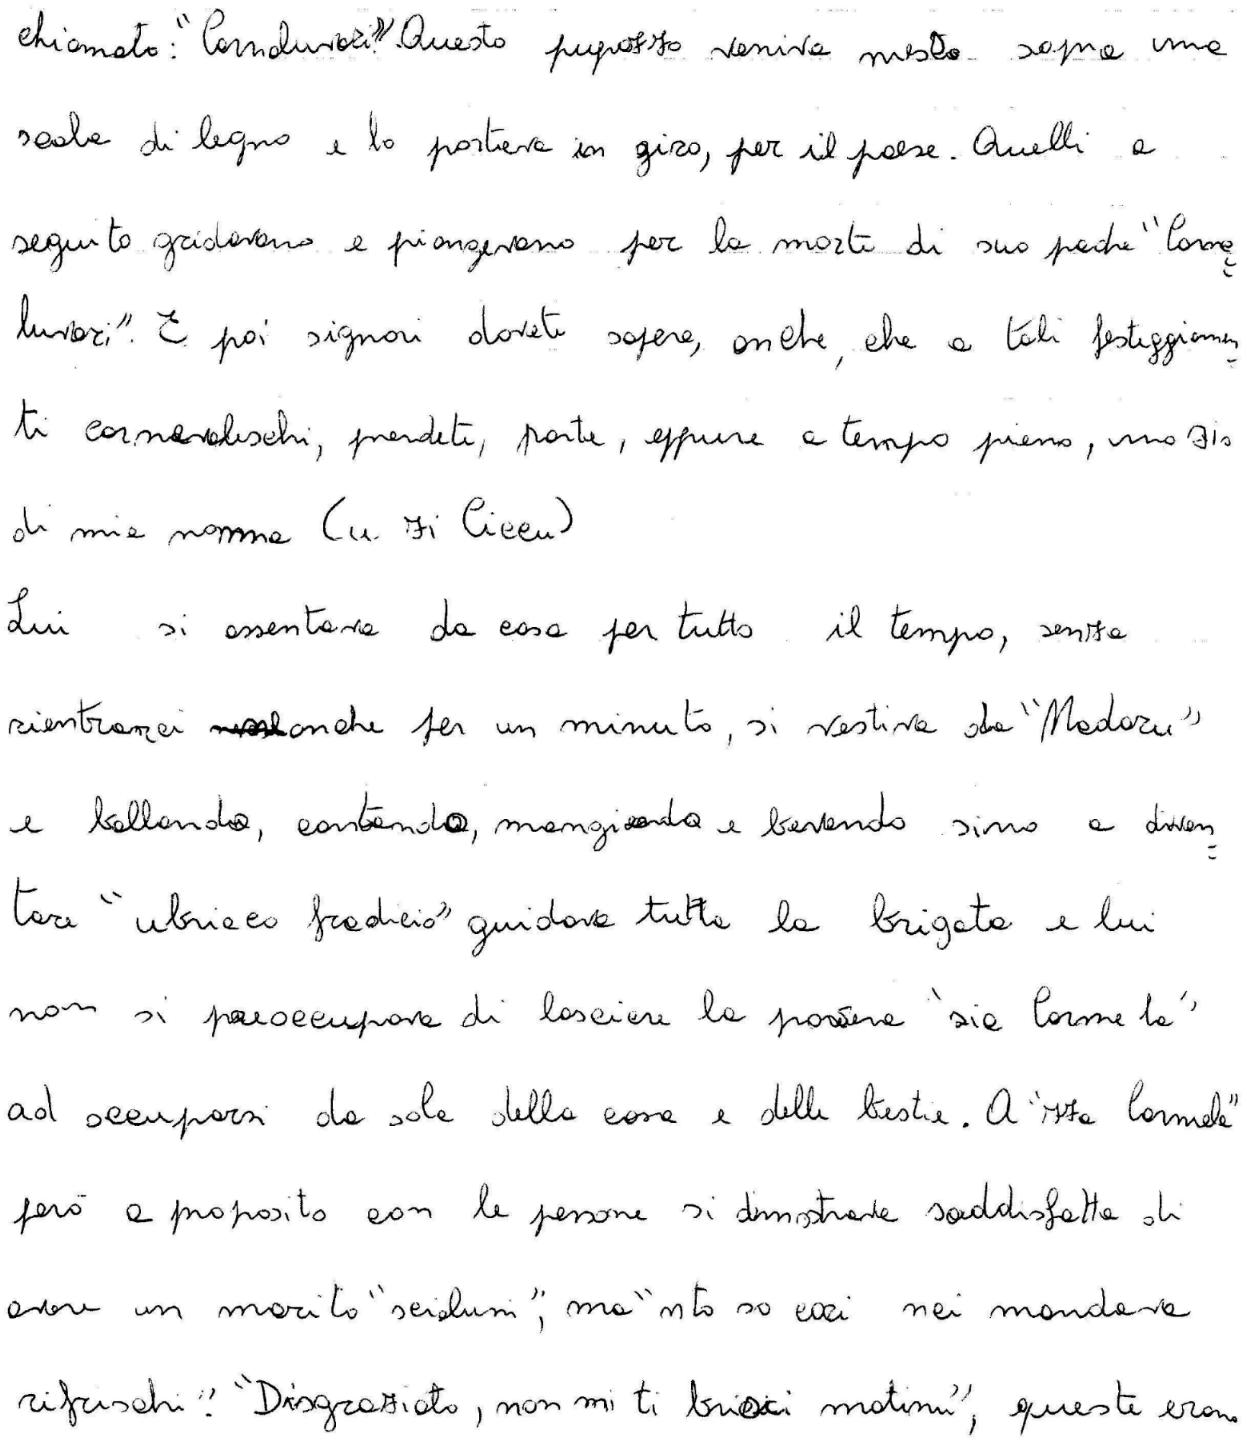 chiamato: "Carnaluvari". Questo pupazzo veniva messo sopra una
scala di legno e lo portava in giro, per il paese. Quelli a
seguito gridavano e piangevano per la morte di suo padre "Carna=
luvari". E poi signori dovete sapere, anche, che a tali festeggiamen=
ti carnevaleschi, prendeti, parte, eppure a tempo pieno, uno zio
di mia nonna (u zi Ciccu)
Lui si assentava da casa per tutto il tempo, senza
rientrarci anche per un minuto, si vestiva da "Madaru"
e ballando, cantando, mangiando e bevendo sino a diven=
tare "ubriaco fradicio" guidava tutta la brigata e lui
non si preoccupava di lasciare la povera "zia Carmela"
ad occuparsi da sola della casa e delle bestie. A "zza Carmela"
però a proposito con le persone si dimostrava soddisfatta di
avere un marito "scialuni", ma "nto so cori nci mandava
rifrischi". "Disgraziato, non mi ti brisci matinu", queste erano